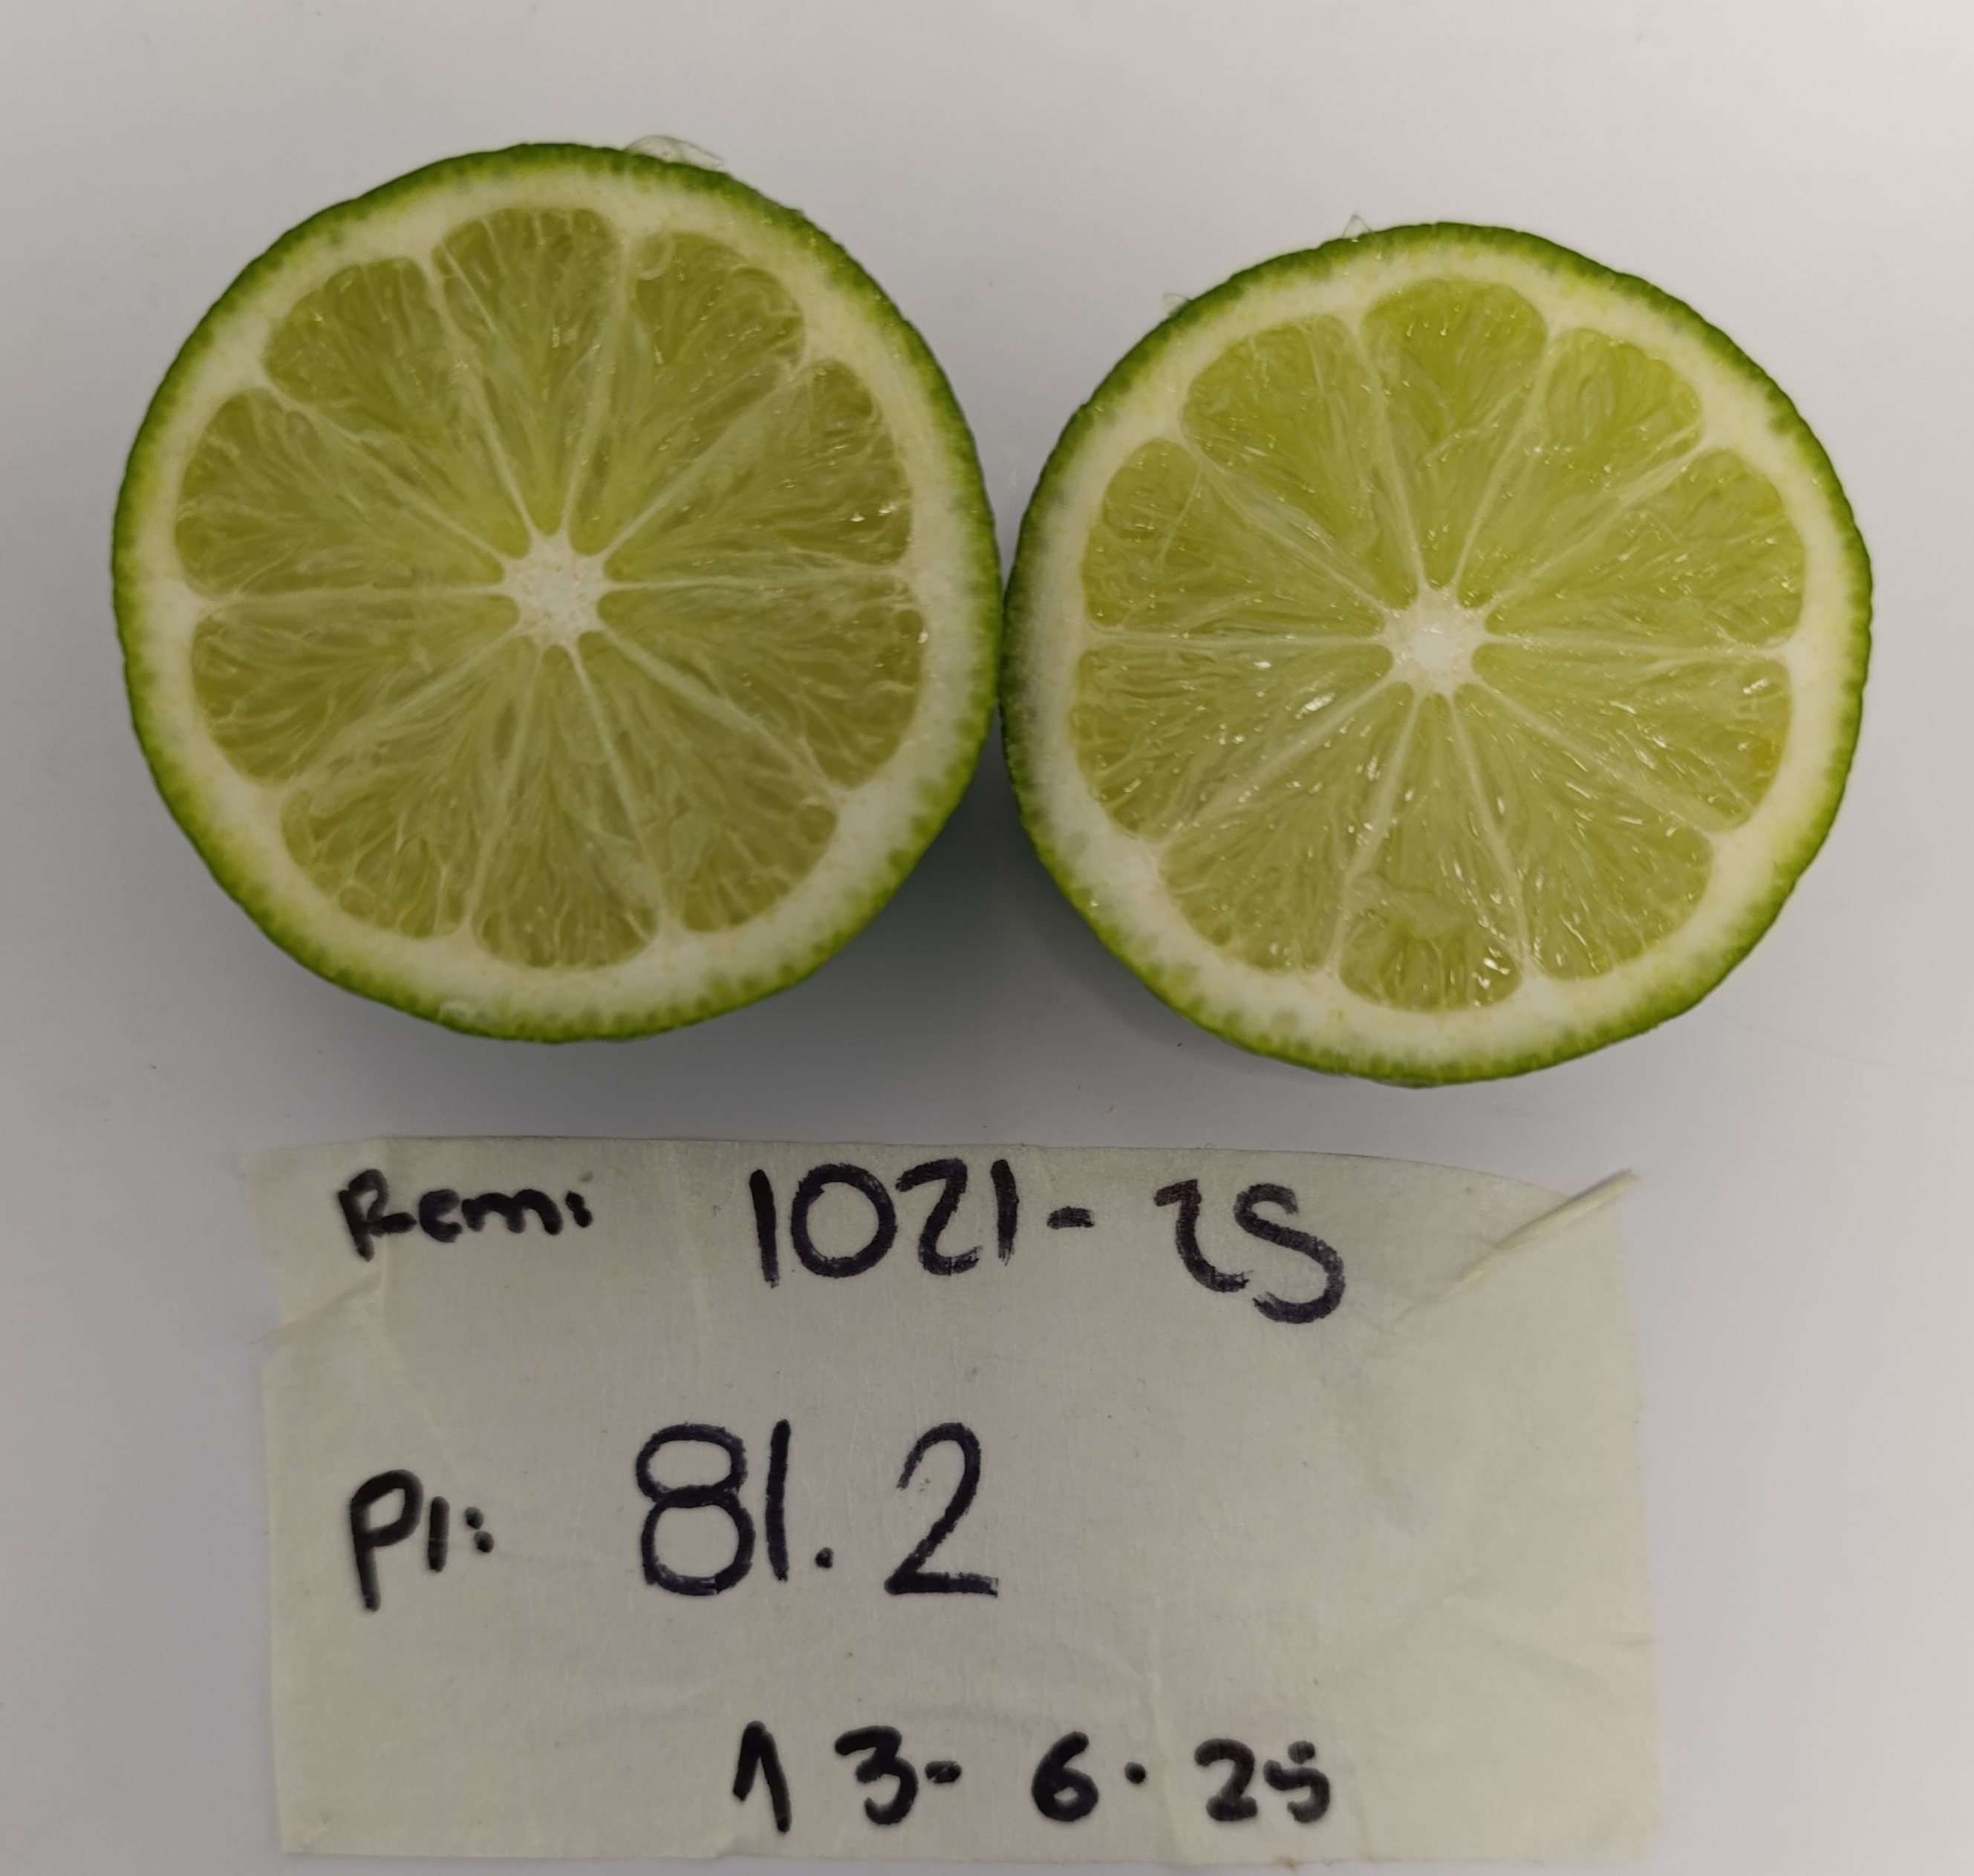 Rem: 1021-25
Pl: 81.2
13-6.25